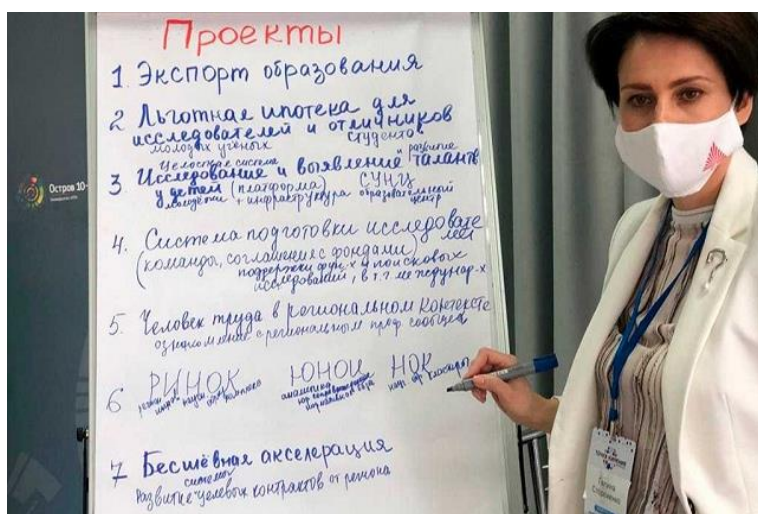 Проекты
1. Экспорт образования
2 Льготная ипотека для
исследователей и отличников
молодых учёных студенто
Целостная система
и развитие
3. Исследование и выявление талантв
у детей (платформа) СУНЦ
молодёжи + инфраструктура образовательный
центр
4. Система подготовки исследовате
лей
(команды, соглашение с фондами)
поддержки фун-х и поисковых
исследований, в т.ч. междунар-х
5. Человек труда в региональном контексте
ознакомление с региональным проф. сообщец
6 РИНОК ЮНОИ НОК
аналитика
7 Бесшёвная акселерация
система
Развитие целевых контрактов от региона
Остров 10-
Галина